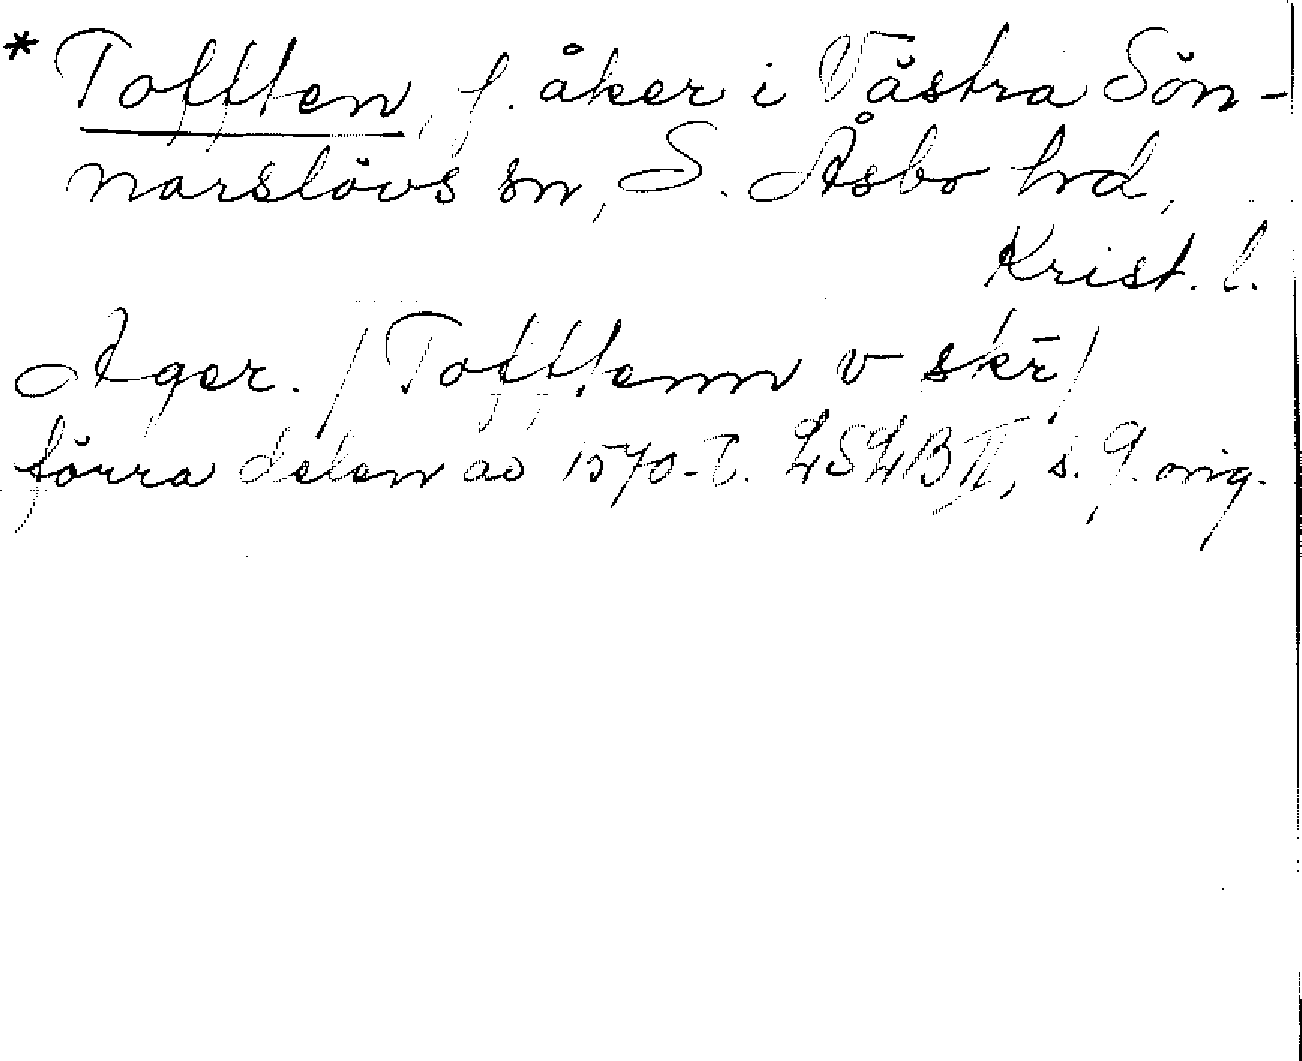 * Tofften, f. åker i Västra Sön-
narslövs sn, S. Åsbo hrd,
Krist. l.
Ager. / Tofftenn v skr /
förra delen av 1570-t. LSLB II, s. 9. orig.